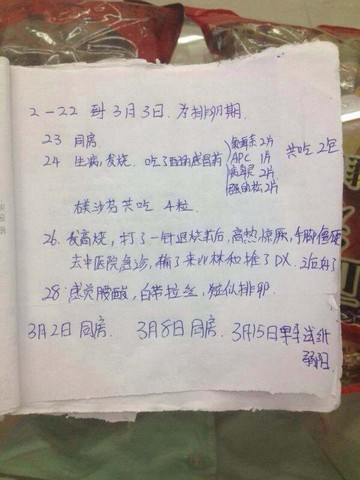 2-22 到 3月3日.为排卵期.
23 同房.
2片
24 生病,发烧. 吃了西药感冒药 APC 1片 共吃 2包
病毒灵 2片
强的松 2片
共吃 4粒
26. 我高烧,打了一针退烧针后,高热惊厥,手脚僵硬
去中医院急诊,输了来比林和推了DX.
28. 感觉腰酸,白带拉丝,疑似排卵.
3月2日同房. 3月8日同房. 3月15日早孕试纸
弱阳